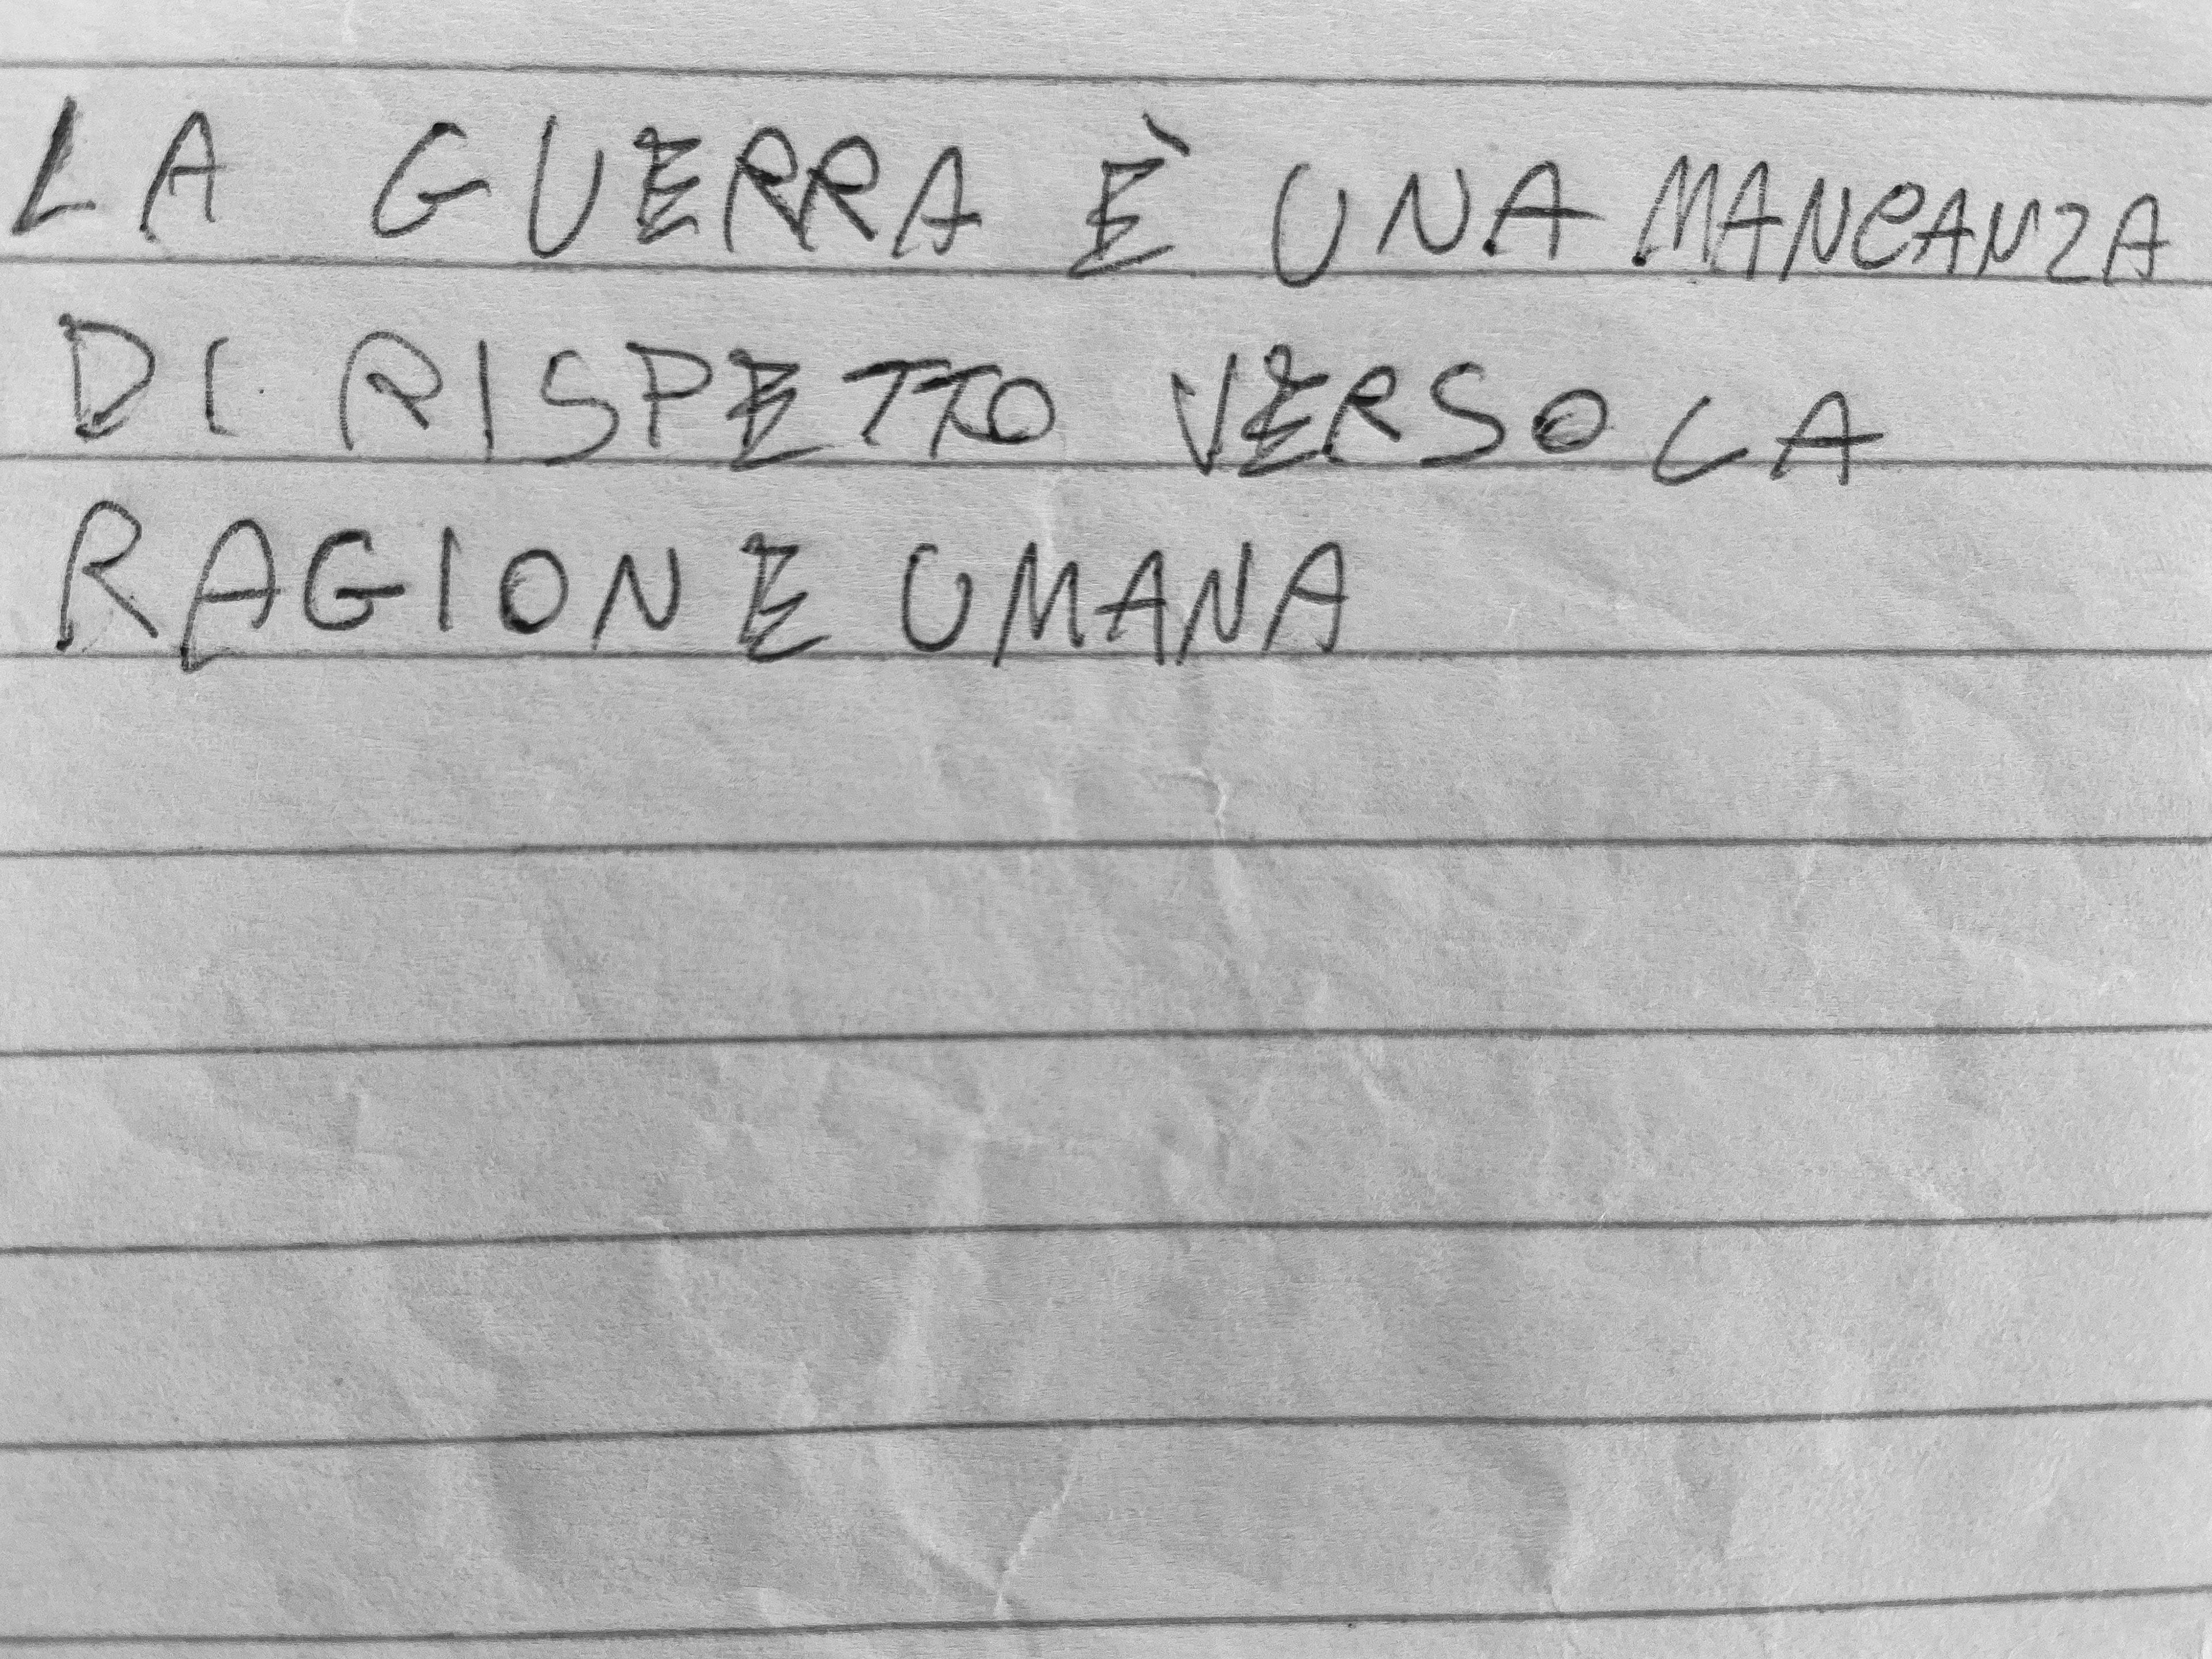 LA GUERRA È UNA MANCANZA
DI RISPETTO VERSO LA
RAGIONE UMANA